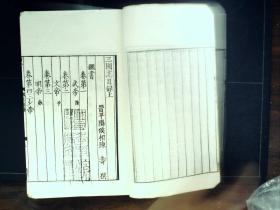 三國志目錄上
晉平陽侯相陳 壽 撰
魏書
卷第一
武帝 操
卷第二
文帝 丕
卷第三
明帝 叡
卷第四 少帝